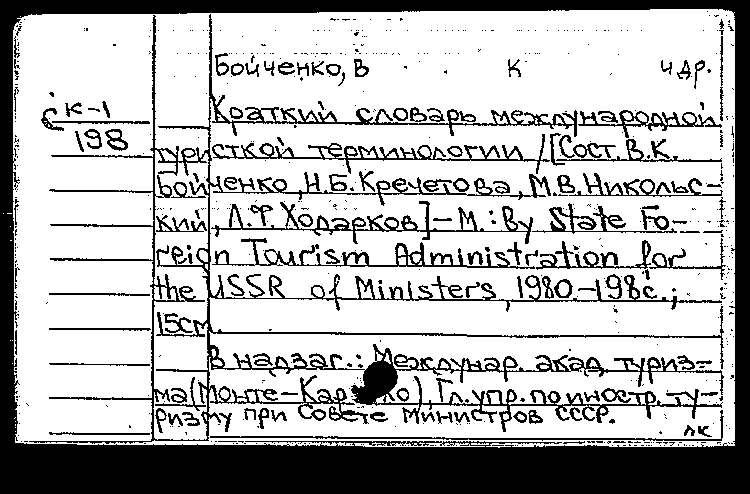 Бойченко, В К и др.
С К-1
198
Краткий словарь международной
туристкой терминологии / [Сост. В.К.
Бойченко, Н.Б. Кречетова, М.В. Никольс-
кий, Л.Ф. Ходарков] – М. : By State Fo-
reign Tourism Administration for
the USSR of Ministers, 1980. – 198 с. ;
15см.
В надзаг. : Междунар. акад. туриз-
ма (Монте-Карло), Гл. упр. по иностр. ту-
ризму при Совете Министров СССР.
лк